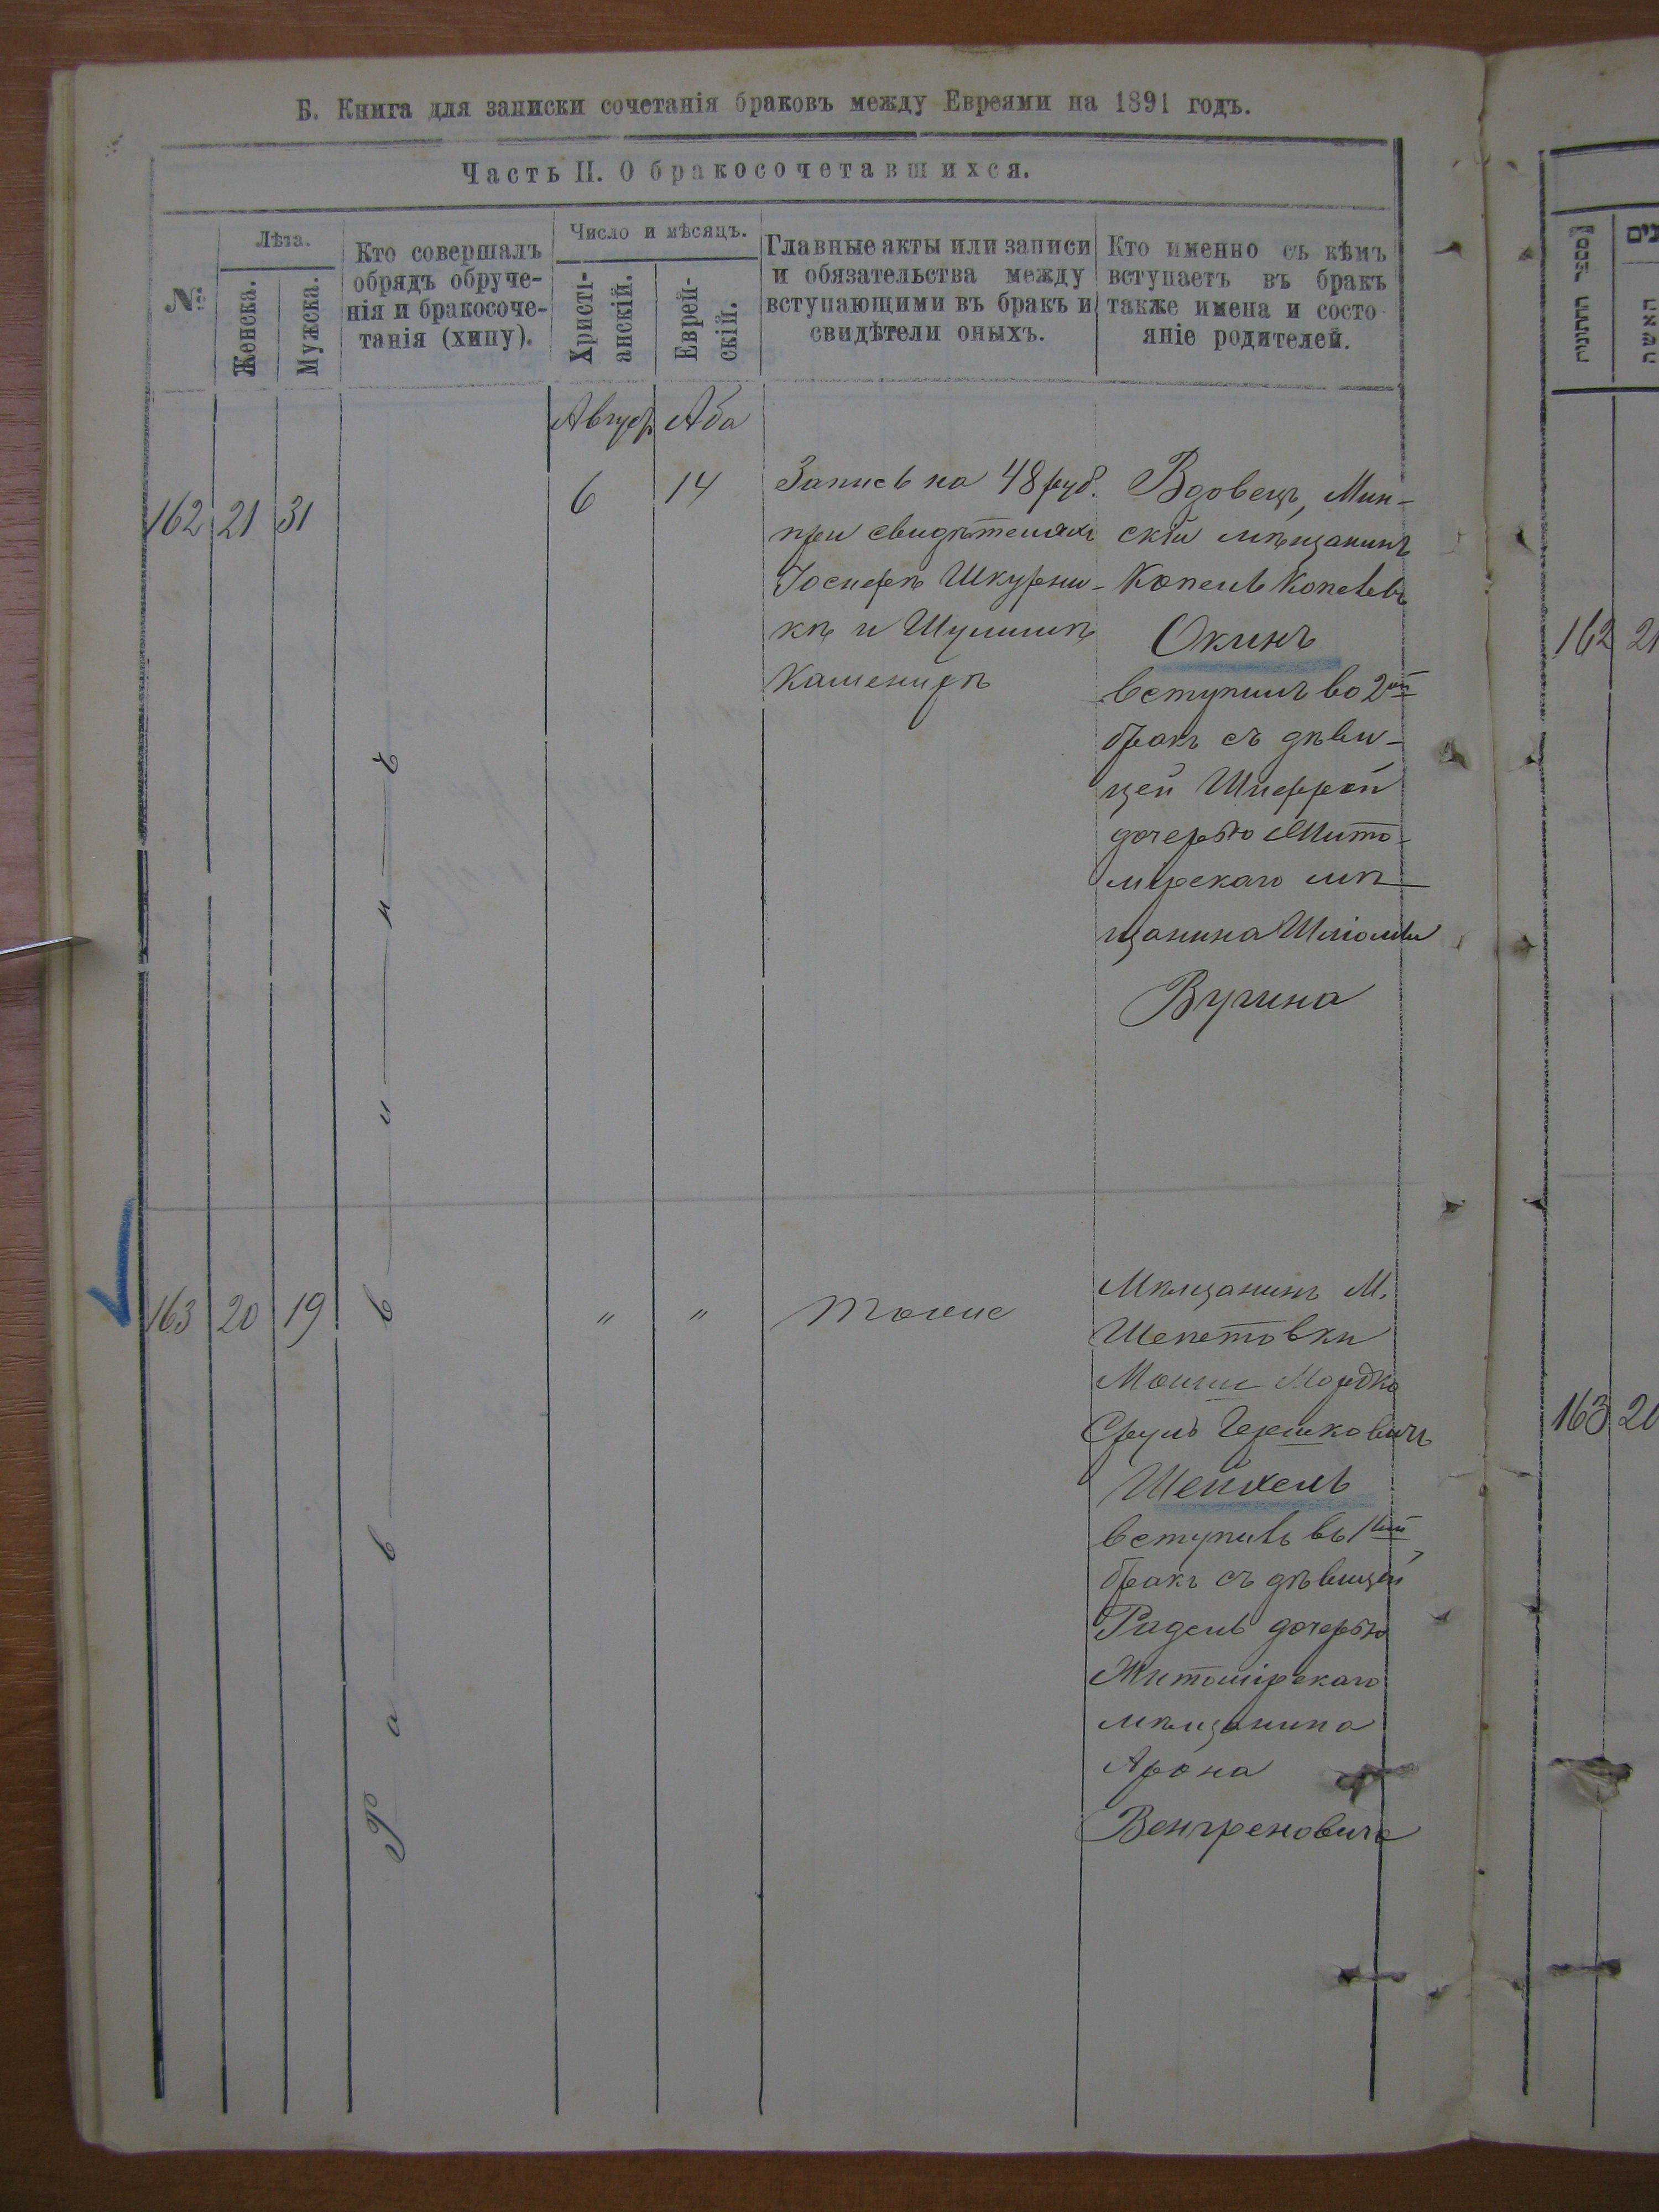 Б. Книга для записки сочетанія браковъ между Евреями на 1891 годъ.
Часть II. О бракосочетавшихся.
№
Лѣта.
Женска.
Мужска.
Кто совершалъ
обрядъ обруче-
нія и бракосоче-
танія (хипу).
Число и мѣсяцъ.
Христі-
анскій.
Еврей-
скій.
Главные акты или записи
и обязательства между
вступающими въ бракъ и
свидѣтели оныхъ.
Кто именно съ кѣмъ
вступаетъ въ бракъ
также имена и состо-
яніе родителей.
Август Аба
162 21 31
6 14
Запись на 48 руб.
при свидѣтеляхъ
Іосифѣ Шкурни-
кѣ и Шулимѣ
Каменирѣ
Вдовецъ, Мин-
скій мѣщанинъ
Копель Копелевъ
Окинъ
вступилъ во 2ой
бракъ съ дѣви-
цей Шифрой
дочерью Жито-
мірскаго мѣ-
щанина Шліомы
Вугина
Раввинъ
163 20 19
" "
Тоже
Мѣщанинъ М.
Шепетовки
Мошко Мордко
Сруль Гершковичъ
Шейхель
вступилъ въ 1ый
бракъ съ дѣвицей
Радель дочерью
Житомірскаго
мѣщанина
Арона
Венгреновича
מספר החתונות
האשה
162 21
163 20